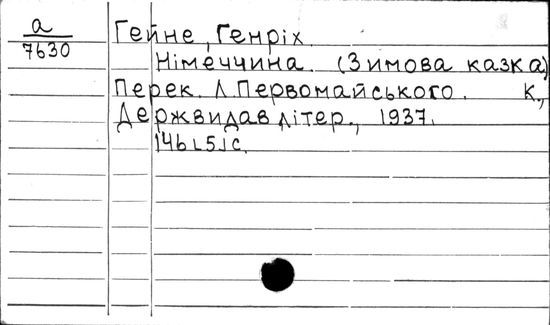 а
7630
Гейне, Генріх.
Німеччина. (Зимова казка)
Перек. Л. Первомайського. К.,
Держвидав літер., 1937.
146 [5] с.